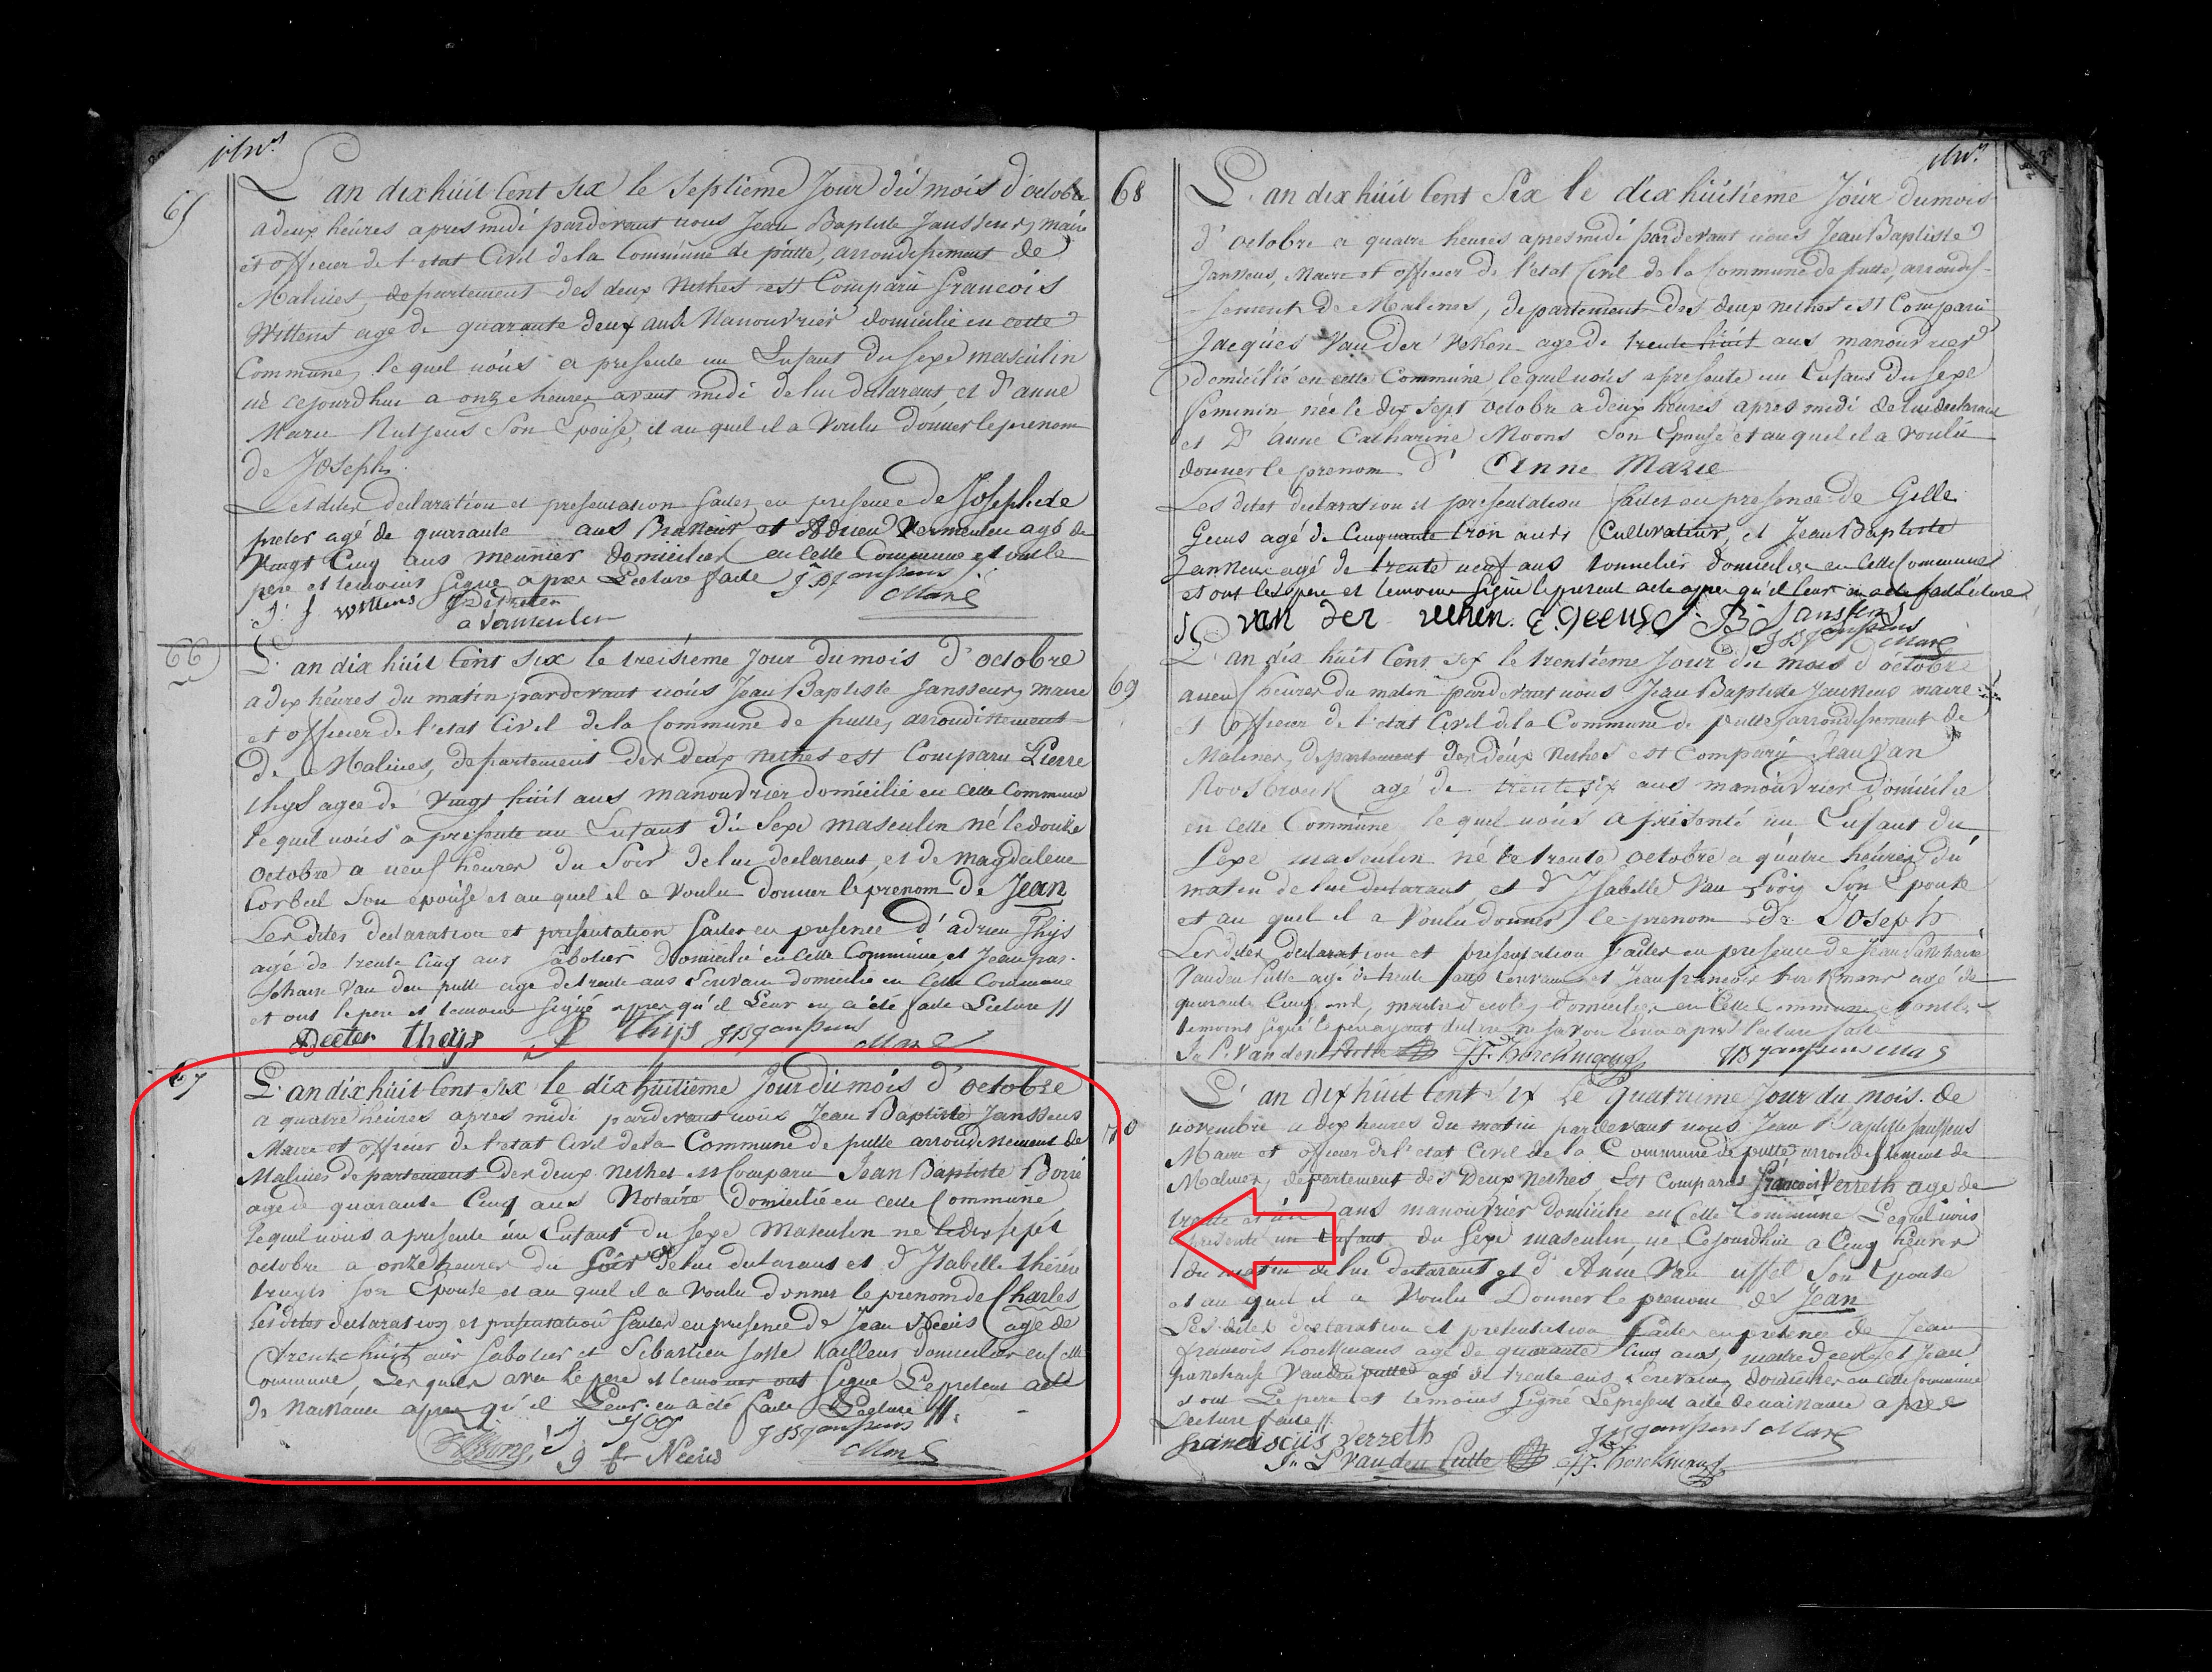 65
L'an dix huit Cent Six le Septieme Jour du mois d'octobre
a deux heures apres midi pardevant nous Jean Baptiste Janssens, maire
et officier de l'etat Civil de la Commune de putte, arrondissement de
Malines, departement des deux Nethes est Comparu francois
Wittens agé de quarante deux ans Manouvrier domicilié en cette
Commune, lequel nous a presente un Enfant du sexe masculin
né cejourdhui a onze heures avant midi de lui declarant, et d'anne
Marie Nutjens Son Epouse, et au quel il a voulu donner le prenom
de Joseph.
Lesdites declaration et presentation faites en presence de Joseph de
preter agé de quarante ans Brasseur et Adrien Vermeulen agé de
Vingt Cinq ans meunier domiciliés en cette Commune et ont le
pere et temoins signé apres Lecture faite J B Janssens
J. f Wittens J De Preter Mare
a Vermeulen
66
L'an dix huit Cent Six le treisieme Jour du mois d'octobre
a dix heures du matin pardevant nous Jean Baptiste Janssens, maire
et officier de l'etat Civil de la Commune de putte, arrondissement
de Malines, departement des deux nethes est Comparu Pierre
thys agée de Vingt huit ans manouvrier domicilié en cette Commune
lequel nous a presente un Enfant du Sexe masculin né le douze
octobre a neuf heures du Soir de lui declarant, et de magdalene
Corbeel Son epouse et au quel il a voulu donner le prenom de Jean
Les dites declaration et presentation faites en presence d'adrien Thys
agé de trente Cinq ans Sabotier domicilié en cette Commune et Jean pas-
Schase Van den putte age de trente ans Ecrivain domicilié en Cette Commune
et ont le pere et temoins signé apres qu'il Leur en a été faite Lecture //
Peeter theys A Thys J B Janssens
Mare
67
L'an dix huit Cent Six le dix huitieme Jour du mois d'octobre
a quatre heures apres midi pardevant nous Jean Baptiste Janssens
Maire et officier de l'etat Civil de la Commune de putte arrondissement de
Malines departement des deux nethes est Comparu Jean Baptiste Boné
agé de quarante Cinq ans Notaire domicilié en cette Commune
lequel nous a presente un Enfant du sexe Masculin né le dix sept
octobre a onze heures du Soir de lui declarant et d'Isabelle thérése
truyts son Epouse et au quel il a voulu donner le prenom de Charles
lesdites declaration et presentation faites en presence de Jean Neeis agé de
trente huit ans Sabotier et Sebastien Josse tailleur domiciliés en cette
Commune, Lesquels avec le pere et temoins ont signé Le present acte
de Naissance apres qu'il Leur en a été faite Lecture //.
J B Janssens
J f Neeis Mare
68
L'an dix huit Cent Six le dix huitieme Jour du mois
d'octobre a quatre heures apres midi pardevant nous Jean Baptiste
Janssens, Maire et officier de l'etat Civil de la Commune de putte, arrondis-
sement de Malines, departement des deux nethes est Comparu
Jacques Van der Veken agé de trente huit ans manouvrier
domicilié en cette Commune, lequel nous a presente un Enfant du sexe
feminin née le dix sept octobre a deux heures apres midi de lui declarant
et D'anne Catharine Moons Son Epouse et au quel il a voulu
donner le prenom d'Anne Marie
Les dites declaration et presentation faites en presence de Gille
Geens agé de Cinquante trois ans Cultivateur, et Jean Baptiste
Janssens agé de trente neuf ans tonnelier domiciliés en Cette Commune
et ont les pere et temoins signé le present acte apres qu'il leur en a été fait Lecture
van der veken. E. geens J. B. Janssens
J B Janssens Mare
69
L'an dix huit Cent Six le trentieme Jour du mois d'octobre
a neuf heures du matin pardevant nous Jean Baptiste Janssens maire
et officier de l'etat Civil de la Commune de putte, arrondissement de
Malines, departement des deux Nethes est Comparu Jean Van
Roosbroeck agé de trente six ans manouvrier domicilié
en cette Commune lequel nous a présenté un Enfant du
Sexe masculin né le trente octobre a quatre heures du
matin de lui declarant et d'Isabelle Van Looy Son Epouse
et au quel il a voulu donner le prenom de Joseph
Les dites declaration et presentation faites en presence de Jean Paschase
Vanden Putte agé de trente ans Ecrivain et Jean francois horckmans agé de
quarante Cinq ans, maitre d'ecole, domiciliés en Cette Commune et ont les
temoins signé le pere ayant declaré ne savoir ecrire apres lecture faite
J. P. Van den Putte J.F. horckmans J B Janssens Mare
70
L'an dix huit Cent Six le quatrieme Jour du mois de
novembre a dix heures du matin pardevant nous Jean Baptiste Janssens
Maire et officier de l'etat Civil de la Commune de putte arrondissement de
Malines, departement des Deux Nethes Est Comparu francois Verreth agé de
trente et un ans manouvrier domicilié en Cette Commune Lequel nous
a presente un Enfant du Sexe masculin, né Cejourdhui a Cinq heures
du matin de lui declarant et d'Anne Van uffel Son Epouse
et au quel il a voulu Donner le prenom de Jean
Les dites declaration et presentation faites en presence de Jean
francois horckmans agé de quarante Cinq ans, maitre d'ecole et Jean
paschase Vanden putte agé de trente ans Ecrivain, domiciliés en cette Commune
et ont Le pere et temoins signé Le present acte de naissance apres
Lecture faite //.
franciscus Verreth J B Janssens Mare
J. P Van den Putte J.F. horckmans